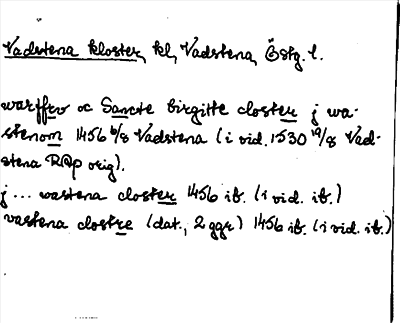 Vadstena kloster, kl, Vadstena, Östg. l.
warffrv oc Sancte birgitte closter j wa-
stenom 1456 6/8 Vadstena (i vid. 1530 19/8 Vad-
stena RAp orig).
j ... wastena closter 1456 ib. (i vid. ib.)
vastena clostre (dat., 2 ggr) 1456 ib. (i vid. ib.)